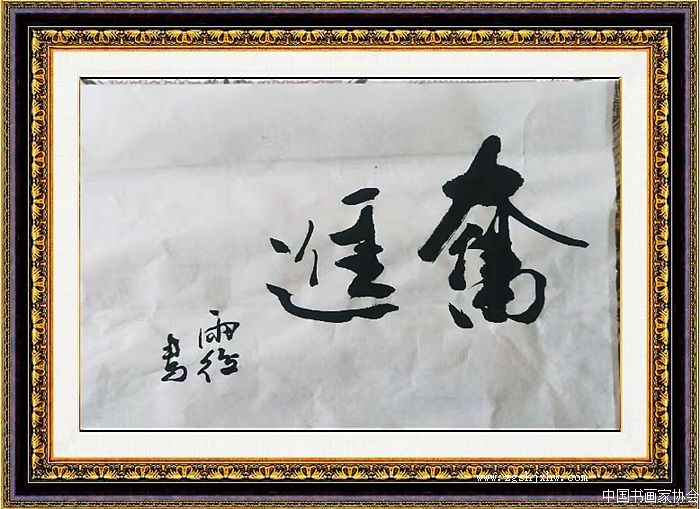 奮進
雨後
書
www.zgshjxhw.com
中国书画家协会